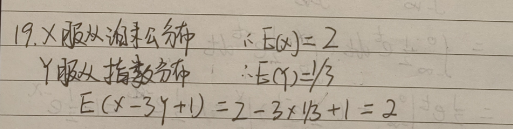 19. X服从泊来公分布 ∴E(x)=2
Y服从指数分布 ∴E(Y)=1/3
E(x-3y+1)=2-3×1/3+1=2